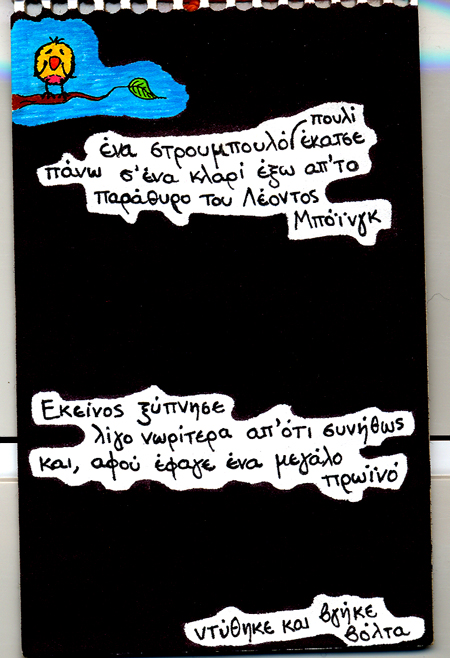 ένα στρουμπουλό πουλί έκατσε
πάνω σ'ένα κλαρί έξω απ'το
παράθυρο του Λέοντος
Μπόϊνγκ
Εκείνος ξύπνησε
λίγο νωρίτερα απ'ότι συνήθως
και, αφού έφαγε ένα μεγάλο
πρωϊνό
ντύθηκε και βγήκε
βόλτα